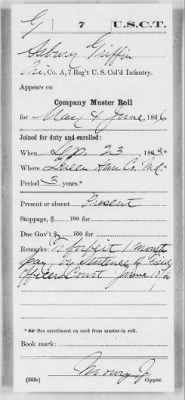 G | 7 | U.S.C.T.
Asbury Griffin
Pvt., Co. A, 7 Reg't U. S. Col'd Infantry.
Appears on
Company Muster Roll
for May & June, 1866
Joined for duty and enrolled:
When Sep. 23, 1863.*
Where Queen Ann Co. Md.
Period 3 years.*
Present or absent Present
Stoppage, $ 100 for
Due Gov't $ 100 for
Remarks: To forfeit 1 months
pay by sentence of Field
Officers Court June
* See enrollment on card from muster-in roll.
Book mark:
(858c) Copyist.